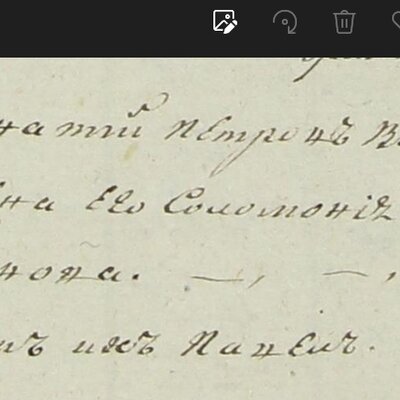 натий Петровъ
на Его Соломонія
нова. —, —,
нъ ихъ Павелъ.